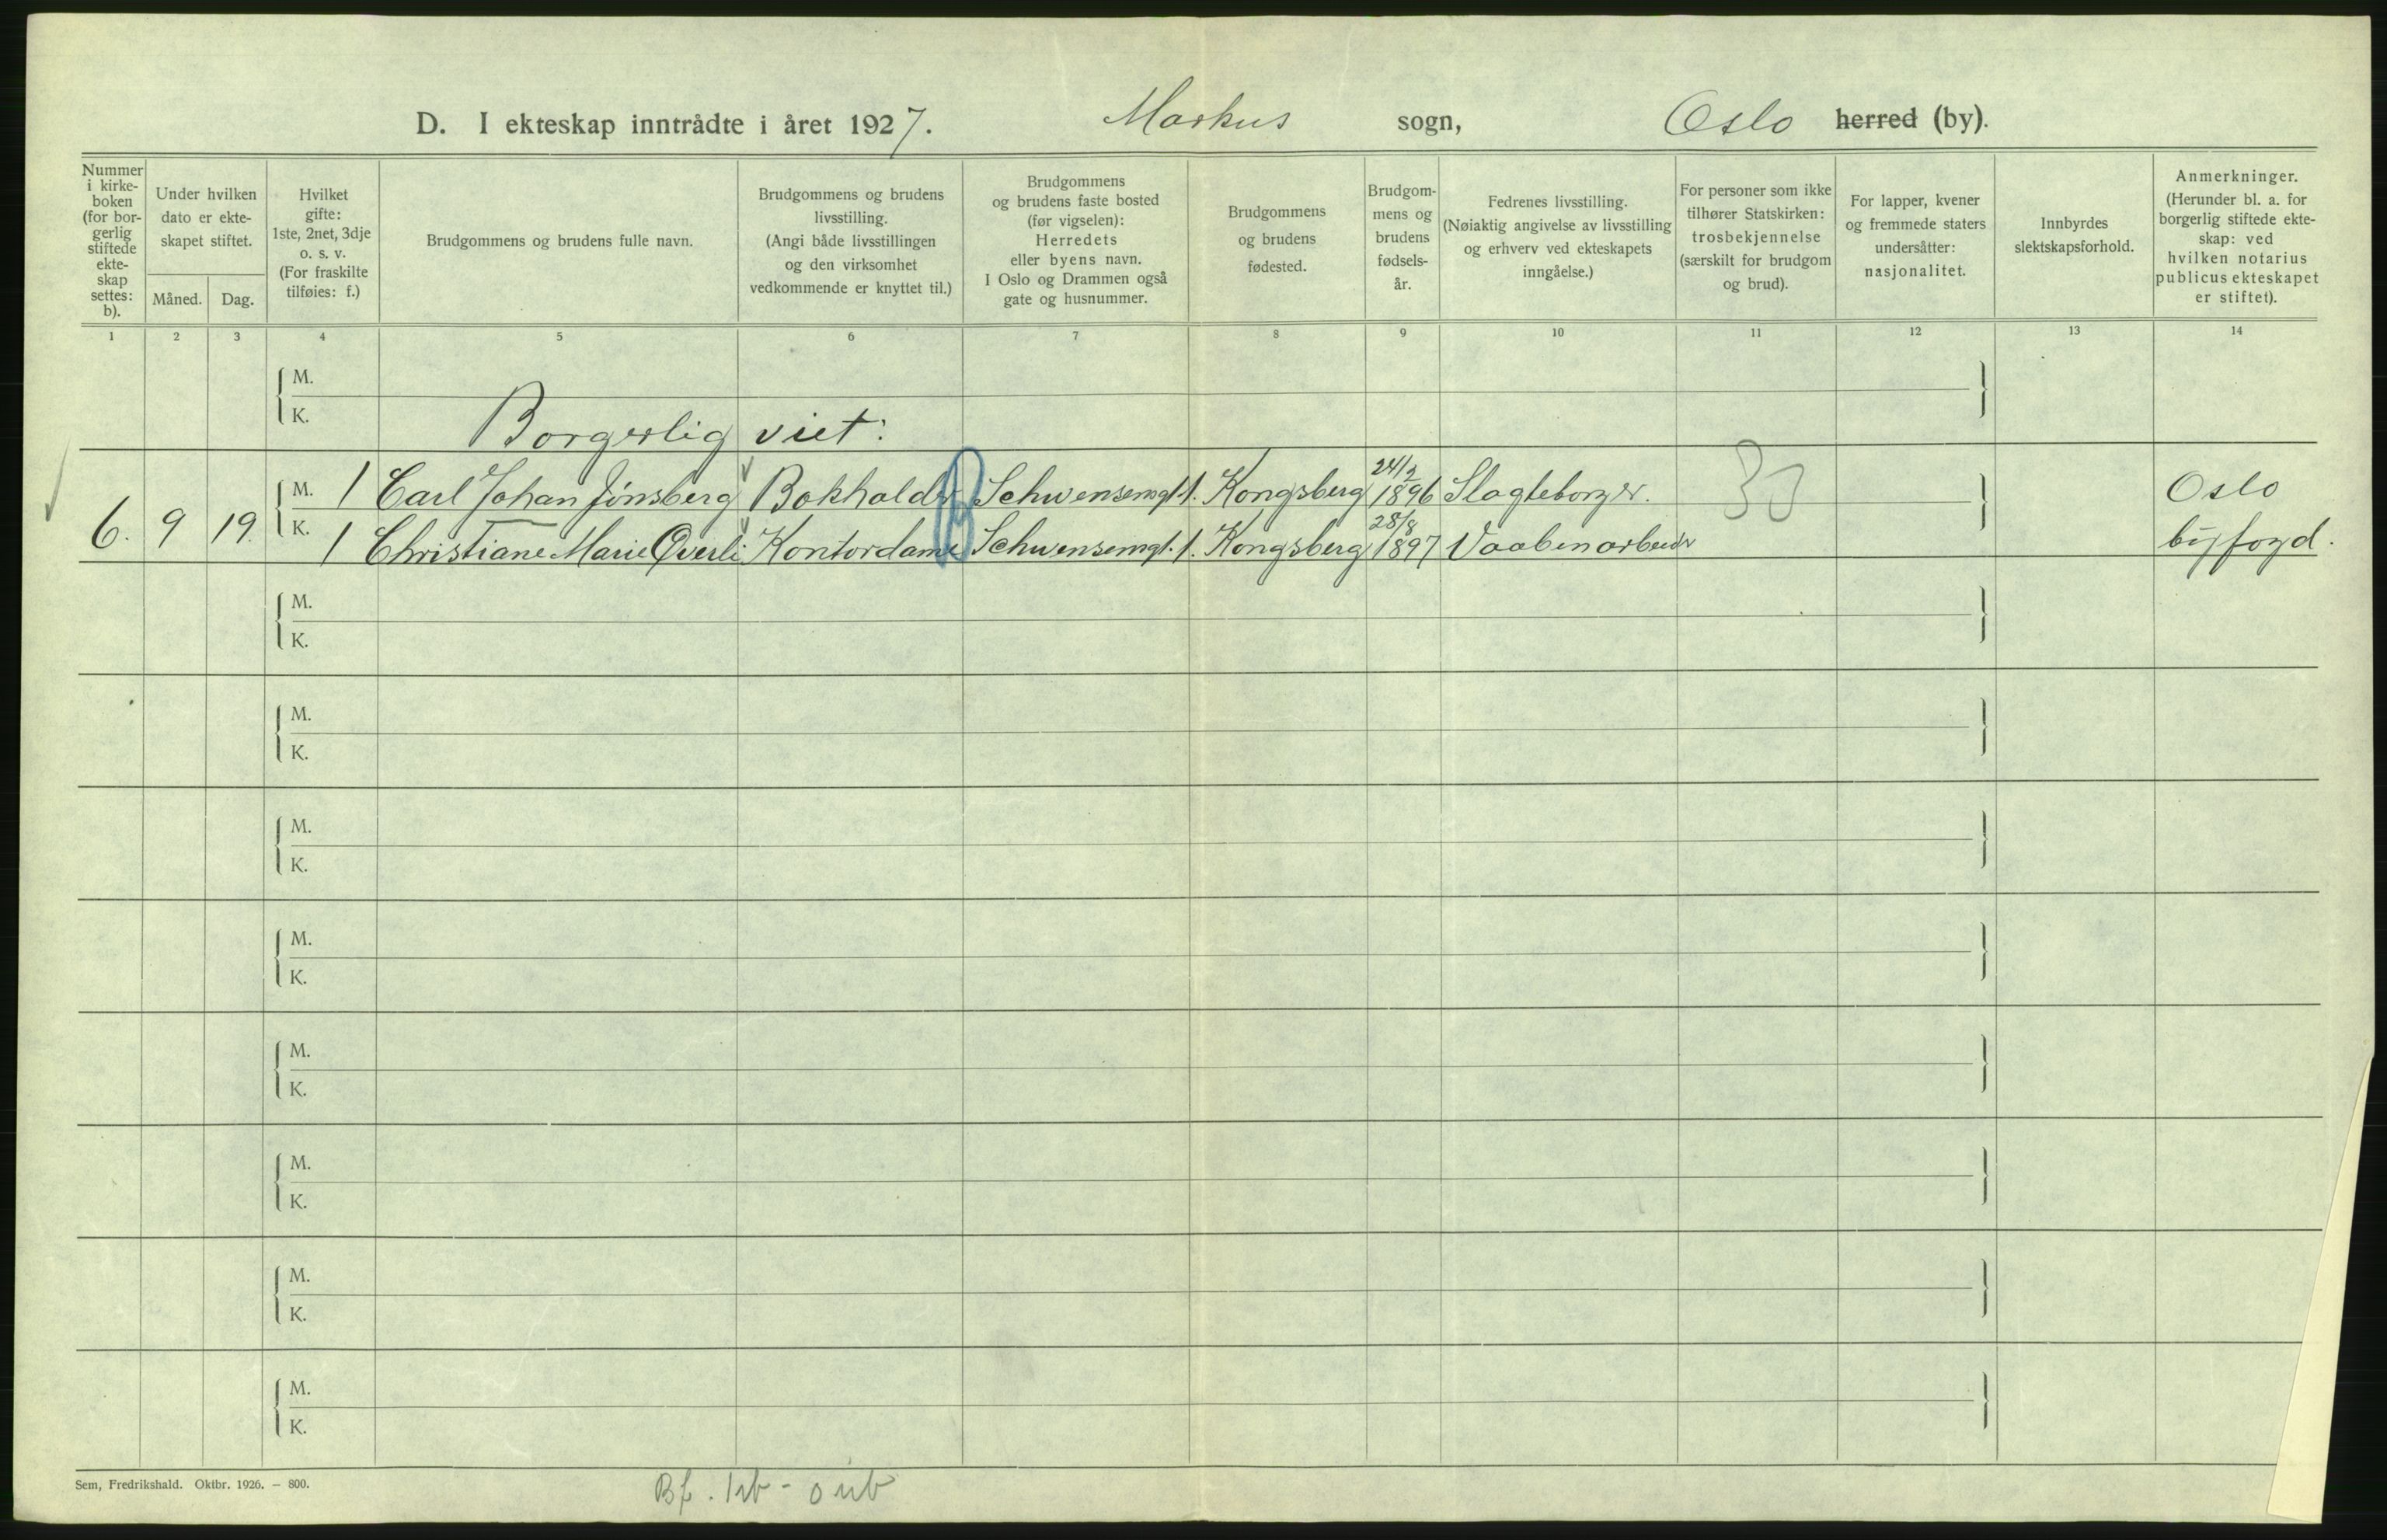 D. I ekteskap inntrådte i året 1927. Markus sogn, Oslo herred (by).
Nummer i kirke-boken (for bor-gerlig stiftede ekte-skap settes: b).
Under hvilken dato er ekte-skapet stiftet.
Måned. Dag.
Hvilket gifte: 1ste, 2net, 3dje o. s. v. (For fraskilte tilføies: f.)
Brudgommens og brudens fulle navn.
Brudgommens og brudens livsstilling. (Angi både livsstillingen og den virksomhet vedkommende er knyttet til.)
Brudgommens og brudens faste bosted (før vigselen): Herredets eller byens navn. I Oslo og Drammen også gate og husnummer.
Brudgommens og brudens fødested.
Brudgom-mens og brudens fødsels-år.
Fedrenes livsstilling. (Nøiaktig angivelse av livsstilling og erhverv ved ekteskapets inngåelse.)
For personer som ikke tilhører Statskirken: trosbekjennelse (særskilt for brudgom og brud).
For lapper, kvener og fremmede staters undersåtter: nasjonalitet.
Innbyrdes slektskapsforhold.
Anmerkninger. (Herunder bl. a. for borgerlig stiftede ekte-skap: ved hvilken notarius publicus ekteskapet er stiftet).
1 2 3 4 5 6 7 8 9 10 11 12 13 14
M.
K.
Borgerlig viet:
M. 1 Carl Johan Jónsberg Bokholder Schwensensgt. 1. Kongsberg 24/2 1896 Slagteborger. 30 Oslo
6. 9 19. K. 1 Christiane Marie Överli Kontordame Schwensensgt. 1. Kongsberg 28/8 1897 Vaabenarbeider byfogd.
M.
K.
M.
K.
M.
K.
M.
K.
M.
K.
M.
K.
M.
K.
M.
K.
Sem, Fredrikshald. Oktbr. 1926. — 800.